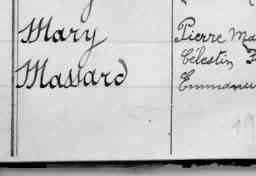 Mary
Massard
Pierre Ma
Célestin
Emmanue